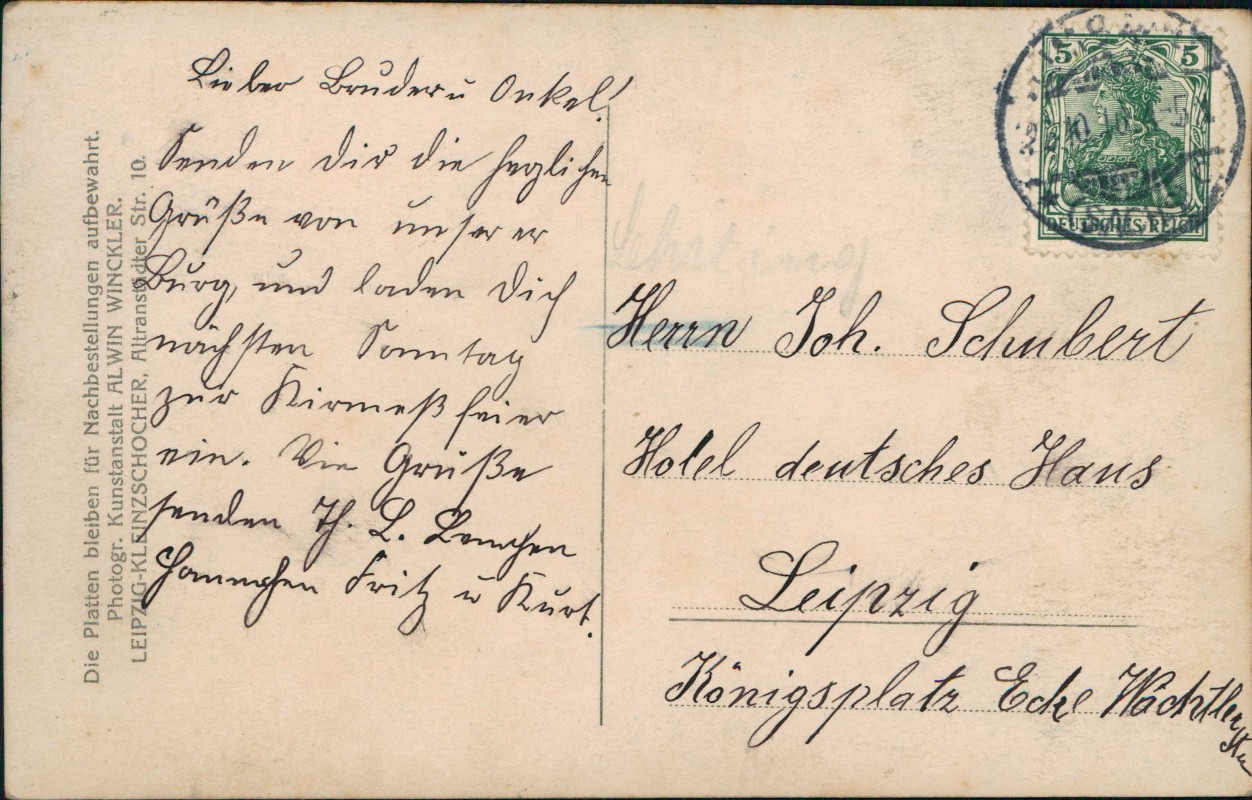 Lieber Bruder u Onkel!
Senden Dir die herzlichen
Grüße von unserer
Burg, und laden Dich
nächsten Sonntag
zur Kirmeßfeier
ein. Vie Grüße
senden Th. L. Lenchen
Hannchen Fritz u Kurt.
Die Platten bleiben für Nachbestellungen aufbewahrt.
Photogr. Kunstanstalt ALWIN WINCKLER.
LEIPZIG-KLEINZSCHOCHER, Altranstädter Str. 10.
5 5
DEUTSCHES REICH
Herrn Joh. Schubert
Hotel deutsches Haus
Leipzig
Königsplatz Ecke Wächtler